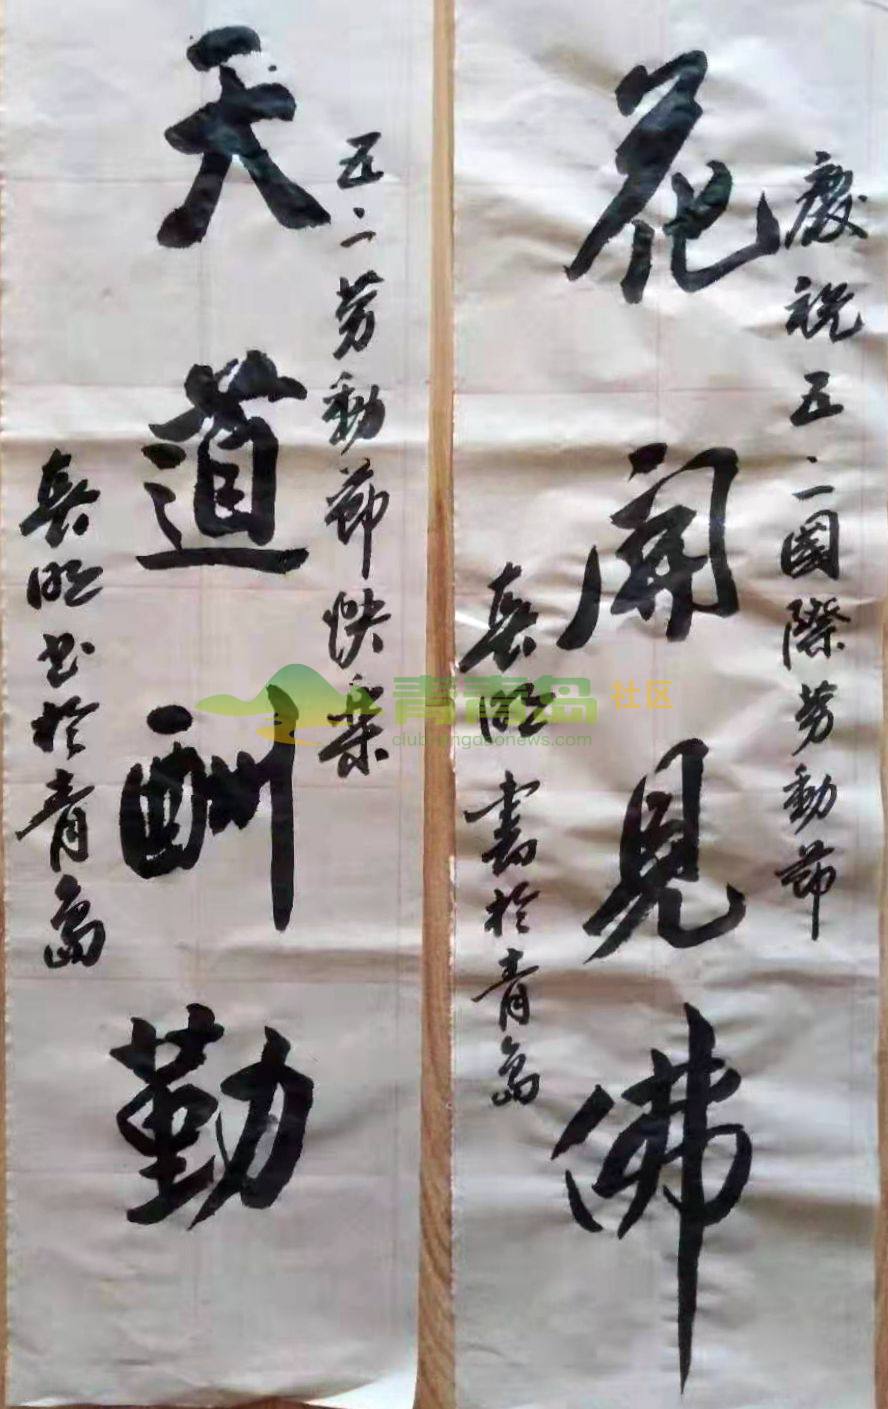 慶祝五·一國際劳動節
花開見佛
明書於青島
五·一劳動節快樂
天道酬勤
明书於青島
青青岛 社区
club.qingdaonews.com